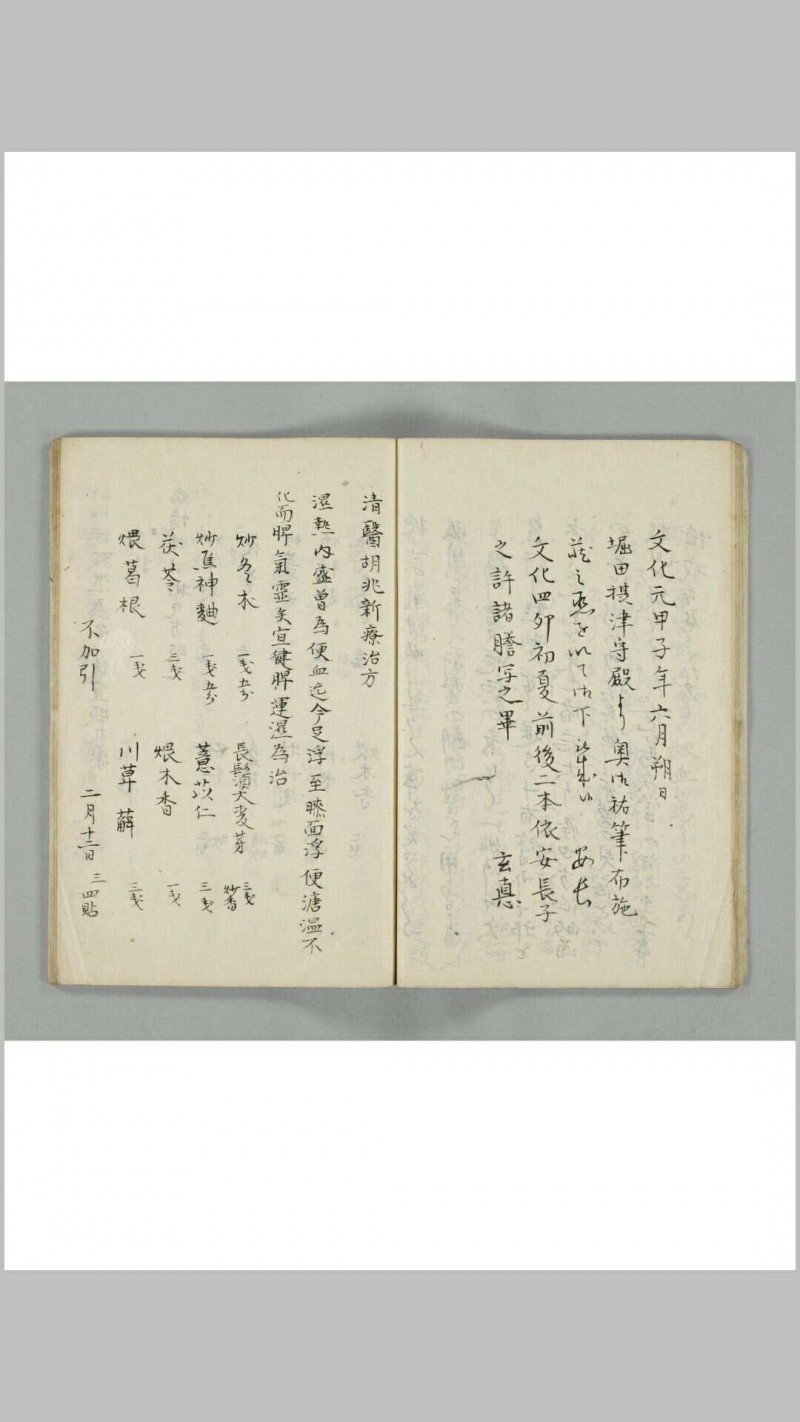 文化元甲子年六月朔日
堀田摂津守殿より奥御祐筆布施
蔵之丞を以て御下
安長
文化四卯初夏前後二本依安長子
之許諾謄写之畢
玄真
清醫胡兆新療治方
濕熱内盛曾為便血迄今足浮至膝面浮便溏溫不
化而脾氣虛矣宣健脾運濕為治
炒冬术 一戔五分 長鬚大麦芽 三戔 炒香
炒焦神麯 一戔五分 薏苡仁 三戔
茯苓 三戔 煨木香 一戔
煨葛根 一戔 川萆薢 三戔
不加引 二月十二日 三四貼